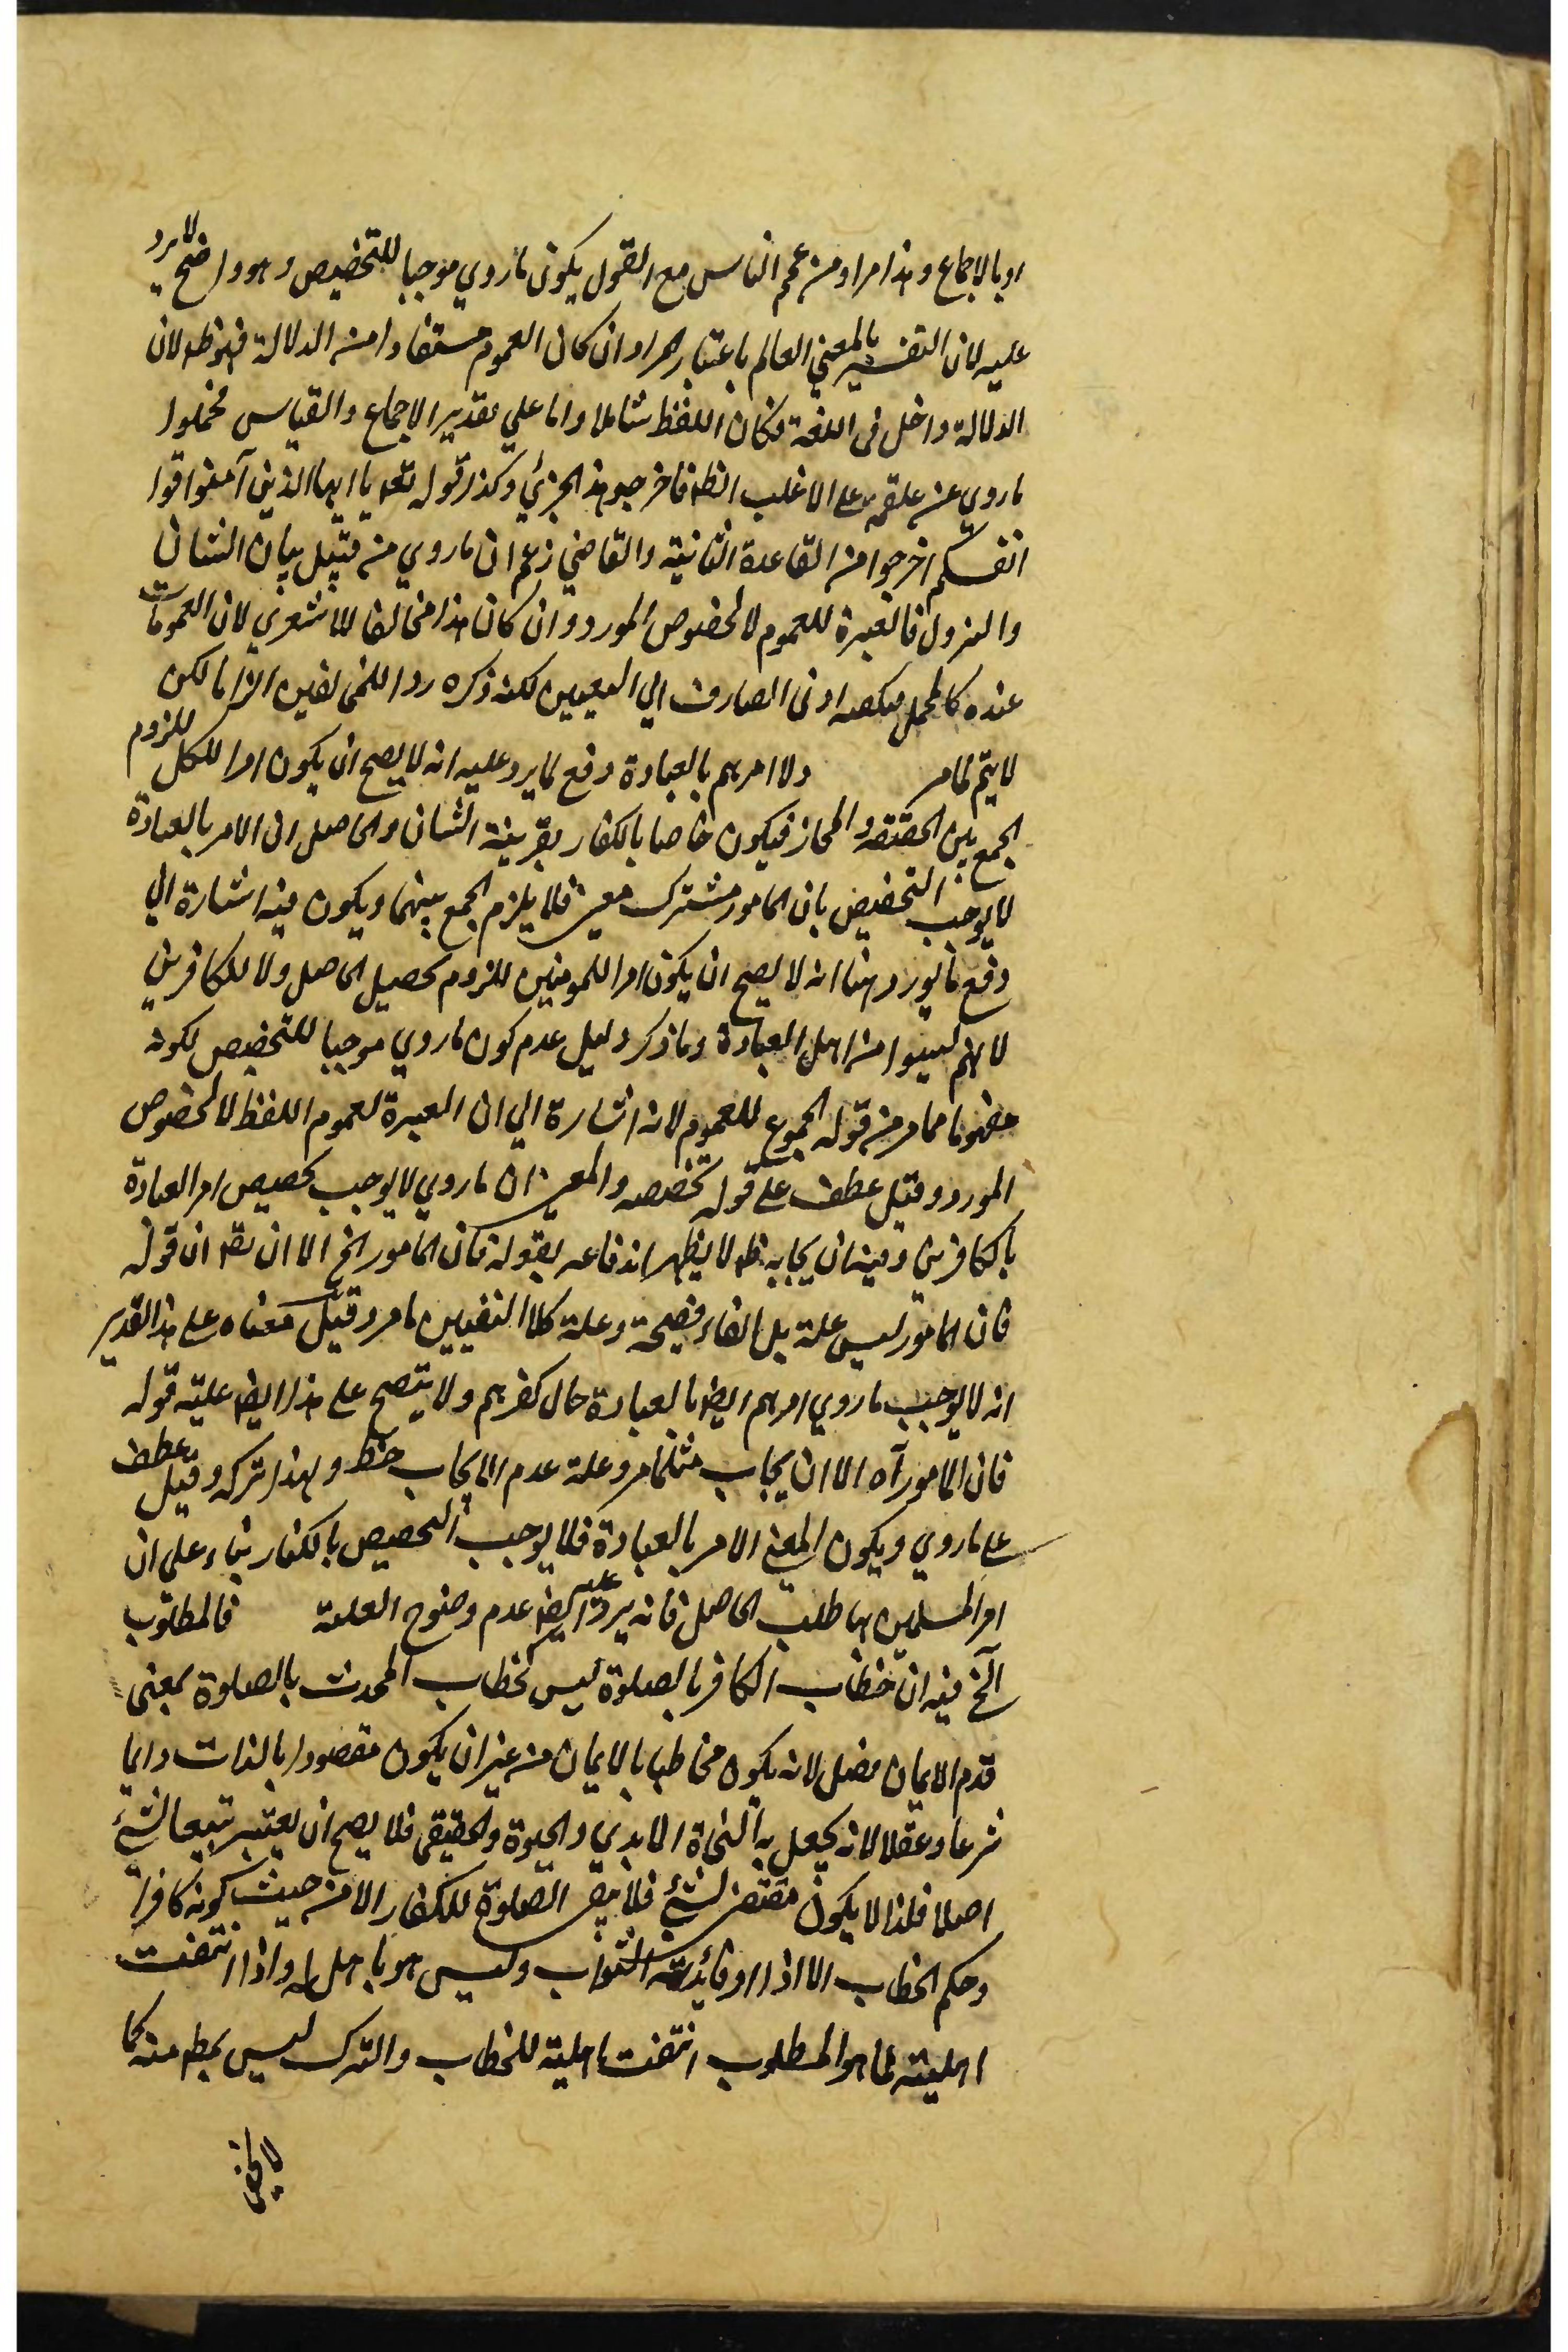 او بالاجماع وهذا مراد من عمم الناس مع القول يكون ما روي موجبا للتخصيص وهو واضح لا يرد
عليه لان التفسير بالمعني العالم باعتبار المراد ان كان العموم مستفادا من الدلالة فهو ظ لان
الدلالة داخل فى اللغة فكان اللفظ شاملا واما علي تقدير الاجماع والقياس فحملوا
ما روي عن علقمة على الاغلب الظ فاخرجوا هذا الجزئي وكذا قوله تعـ يا ايها الذين آمنوا قوا
انفسكم اخرجوا من القاعدة الثانية والقاضي زعم ان ما روي من قبيل بيان الشان
والنزول فالعبرة للعموم لا لخصوص المورد وان كان هذا مخالفا للاشعري لان العمومات
عنده كالمجمل ادنى الصارف الي التعيين لكنه ذكره ردا للمخالفين الزاما لكن
لا يتم لما مر ولا امرهم بالعبادة دفع لما يرد عليه انه لا يصح ان يكون امرا للكل للزوم
الجمع بين الحقيقة والمجاز فيكون خاصا بالكفار بقرينة الشان والحاصل ان الامر بالعبادة
لا يوجب التخصيص بان المامور مشترك معنى فلا يلزم الجمع بينهما ويكون فيه اشارة الي
دفع ما يورد هنا انه لا يصح ان يكون امرا للمومنين للزوم تحصيل الحاصل ولا للكافرين
لانهم ليسوا من اهل العبادة وما ذكر دليل عدم كون ما روي موجبا للتخصيص لكونه
مفهوما مما مر من قوله الجموع للعموم لانه اشارة الي ان العبرة لعموم اللفظ لا لخصوص
المورد وقيل عطف على قوله تخصيصه والمعنى ان ما روي لا يوجب تخصيص امر العبادة
بالكافرين وفيه ان ايجابه ظ لا يظهر اندفاعه بقوله فان المامور الخ الا ان يقـ ان قوله
فان المامور ليس علة بل الفاء فصيحة وعلة كلا النفيين ما مر وقيل معناه على هذا التقدير
انه لا يوجب ما روي امرهم ايضا بالعبادة حال كفرهم ولا يتضح على هذا ايضا علية قوله
فان المامور آه الا ان يجاب مثلما مر وعلة عدم الايجاب ولهذا تركه وقيل عطف
على ما روي ويكون المعنى الامر بالعبادة فلا يوجب التخصيص بالكفار بناء على ان
امر المسلمين بها طلب الحاصل فانه يرد عليه ايضا عدم وضوح العلة فالمطلوب
الخ فيه ان خطاب الكافر بالصلوة ليس كخطاب المحدث بالصلوة بمعنى
قدم الايمان فصل لانه يكون مخاطبا بالايمان من غير ان يكون مقصودا بالذات دايما
شرعا وعقلا لانه يحصل به النجاة الابدي والحيوة والحقيقى فلا يصح ان يعتبر تبيعا لشئ
اصلا فلذا لا يكون مقتضى لشئ فلا الصلوة للكفار الا من حيث كونه كافرا
وحكم الخطاب الاداء او فائدته الثواب وليس هو باهل له واذا انتفت
اهليته لما هو المطلوب انتفت اهليته للخطاب والترك ليس بمط منه كما
لا يخفى